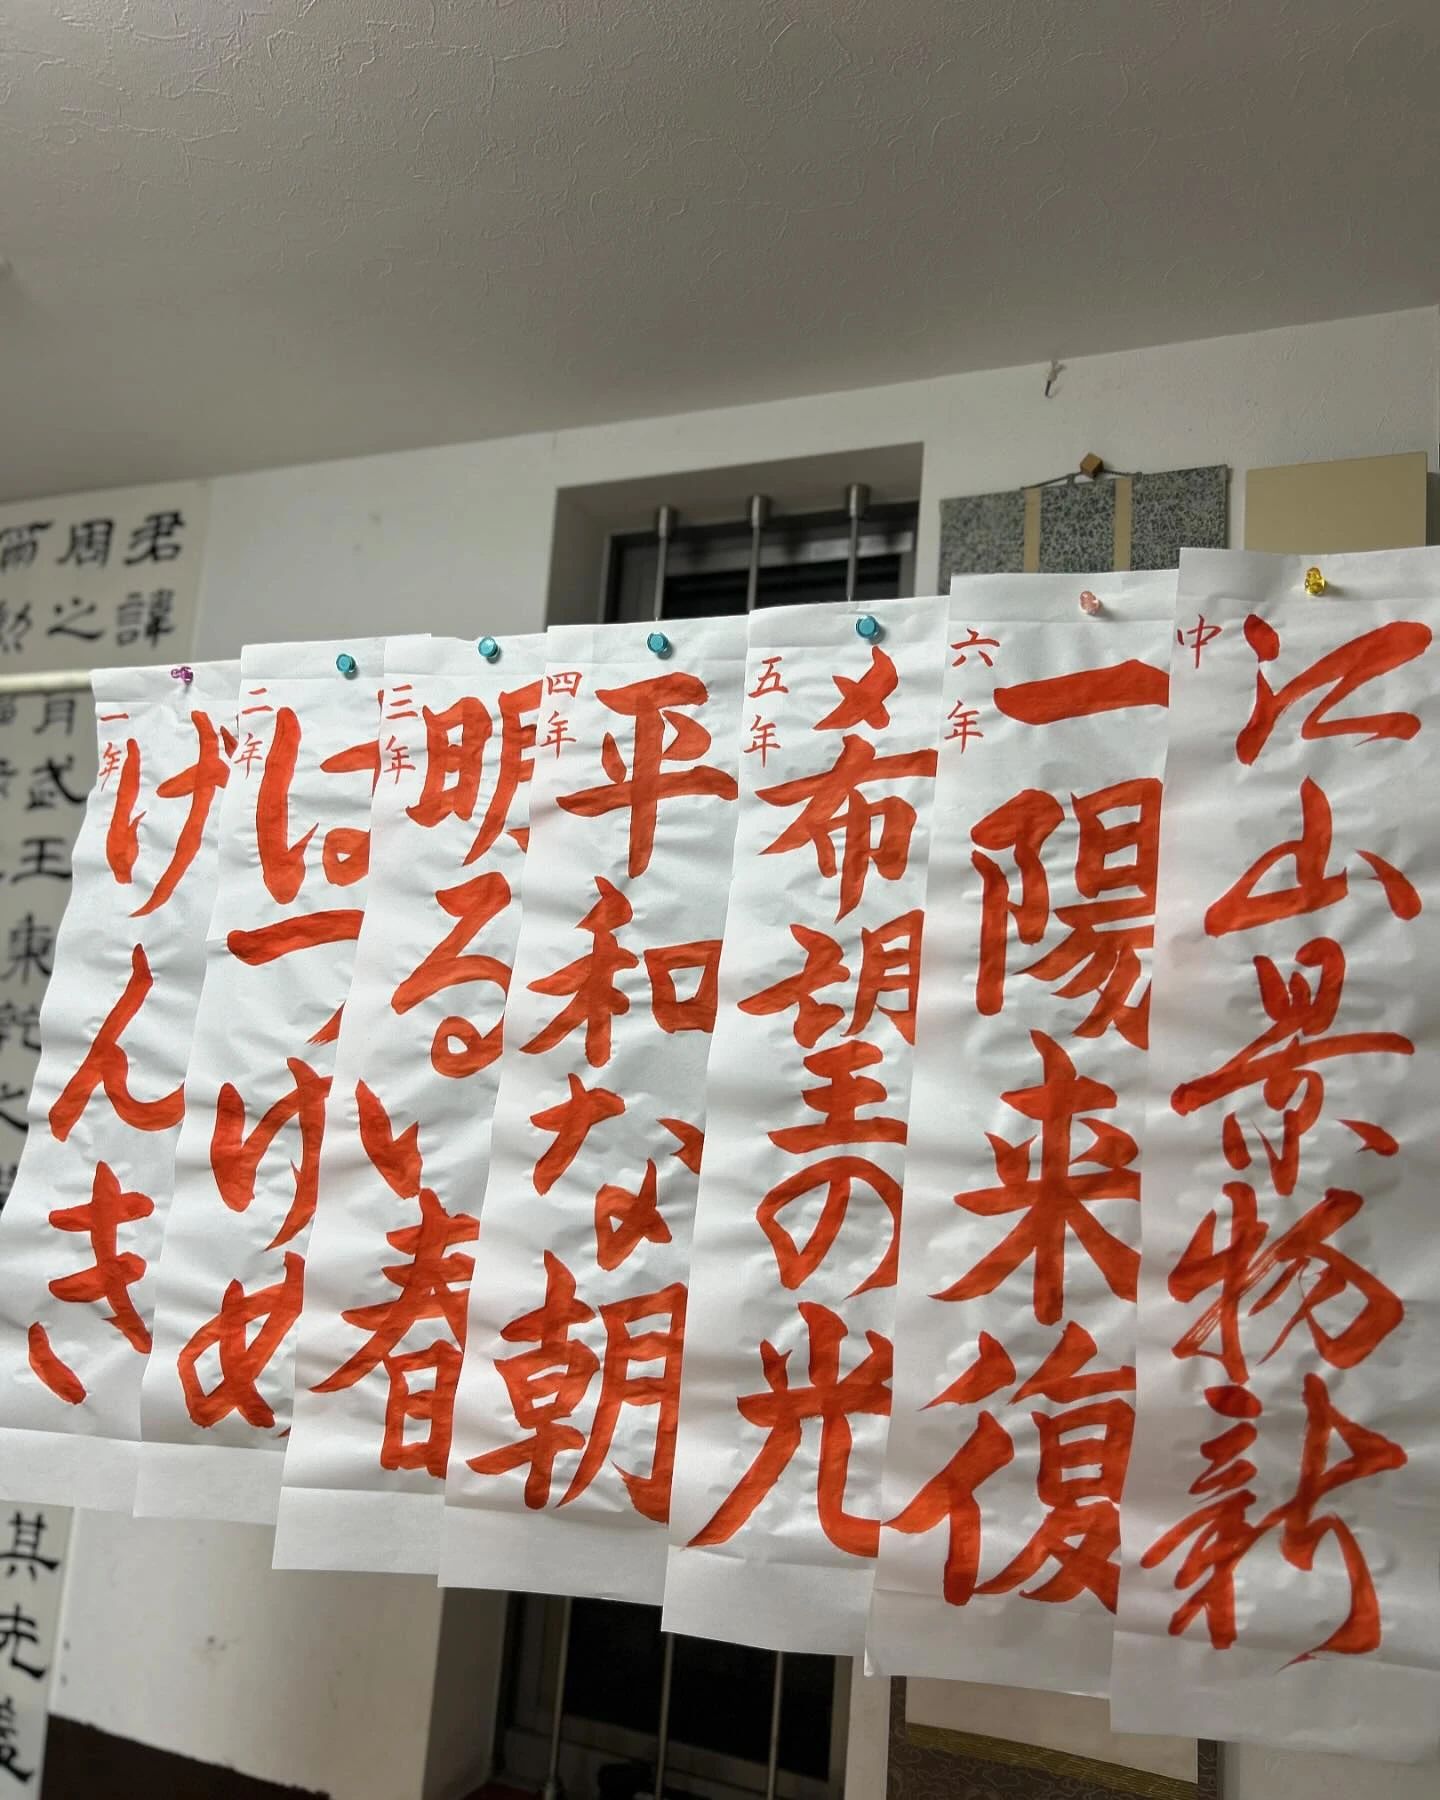 江山景物新
中
一陽来復
六年
希望の光
五年
平和な朝
四年
明るい春
三年
はつゆめ
二年
げんき
一年
君諱
周之
武王秉乾之
其先